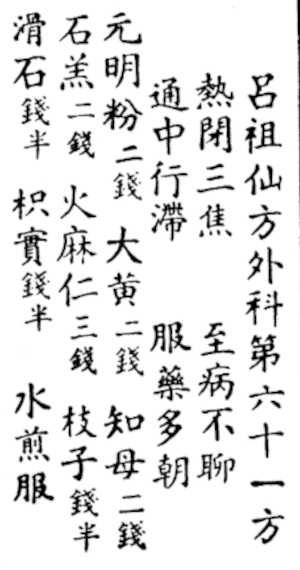 呂祖仙方外科第六十一方
熱閉三焦　至病不聊
通中行滯　服藥多朝
元明粉二錢　大黃二錢　知母二錢
石羔二錢　火麻仁三錢　枝子錢半
滑石錢半　枳實錢半　水煎服